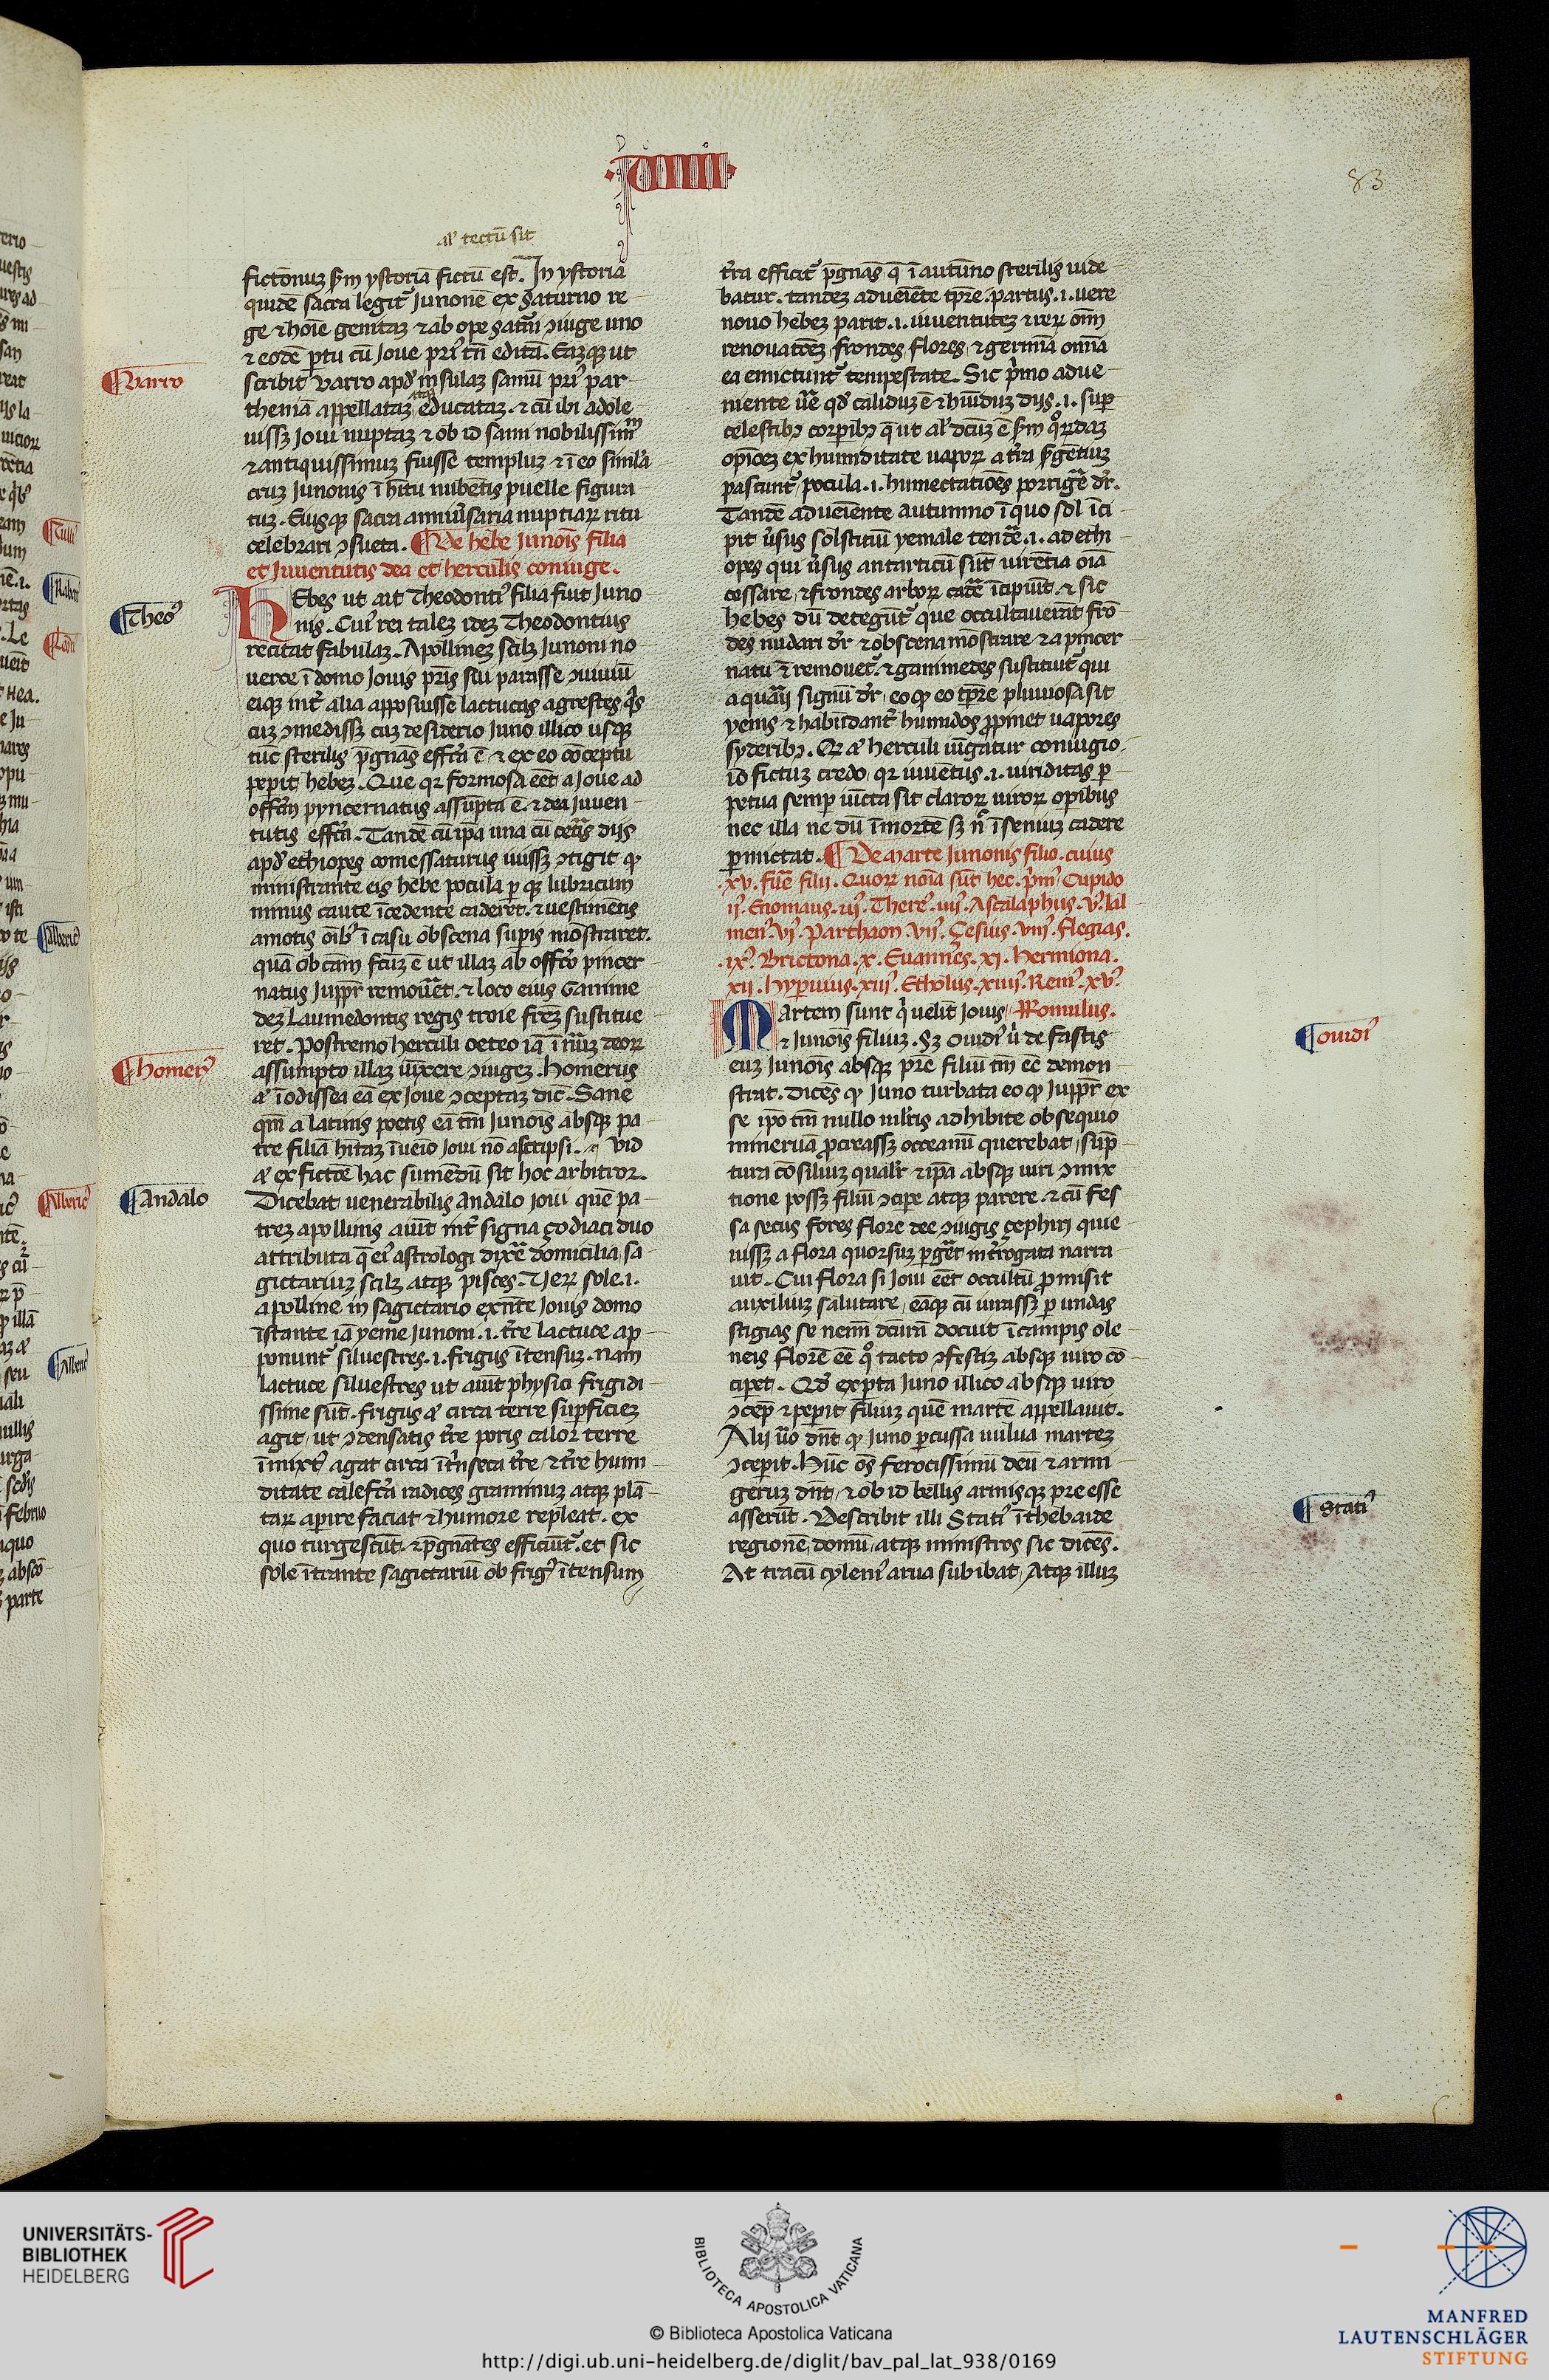 ·VIIII·
83
al' tectū sit
fictonuꝫ ẜm ystoriā fictū est. In ystoria
quidē sacra legit᷑ Junonē ex saturno re
ge ⁊ hoīe genitaꝫ ⁊ ab ope sat᷑ni ↄiuge uno
⁊ eodē ptu cū Joue pri⁹ tn̄ editā. Eaꝫqꝫ ut
scribit Varro apd' insulaꝫ samū pri⁹ par
theniā appellataꝫ educataꝫ. ⁊ cū ibi adole
uissꝫ Joui nuptaꝫ ⁊ ob id sami nobilissimū
⁊ antiquissimuꝫ fuisse templuꝫ ⁊ ī eo simla
cruꝫ Junonis ī hītu nubētis puelle figura
tuꝫ. Eiusqꝫ sacra anniu͛saria nuptiaꝝ ritu
celebrari ↄsueta. ¶ De hebe Junoīs filia
et Juuentutis dea et herculis coniuge.
HEbes ut ait Theodonti⁹ filia fuit Juno
nis. Cui⁹ rei taleꝫ ideꝫ Theodontius
recitat fabulaꝫ. Apollineꝫ scilꝫ Junoni no
uerce ī domo Jouis pr̄is sui parasse ↄuiuiū
eiqꝫ int᷑ alia apposuisse lactucas agrestes q̄s
cuꝫ ↄmedissꝫ cuꝫ desiderio Juno illico usqꝫ
tūc sterilis p̄gnās effc̄a ē ⁊ ex eo cōceptu
peperit hebeꝫ. Que qꝛ formosa eēt a Joue ad
offm̄ pyncernatus assūpta ē. ⁊ dea Juuen
tutis effc̄a. Tandē cū ipā una cū cet͛is dijs
apd' ethiopes comessaturus iuissꝫ ↄtigit ꝙ
ministrante eis hebe pocula ꝑ qꝫ lubricum
minus caute īcedente caderet. ⁊ uestimētis
amotis oībꝫ ī casu obscena supis mōstraret.
quā ob cām fcūꝫ ē ut illaꝫ ab offō pincer
natus Juppr̄ remouet͛. ⁊ loco eius Ganime
deꝫ Laumedontis regis troie freꝫ sustitue
ret. Postremo herculi oeteo iā ī nūꝫ deoꝝ
assumpto illaꝫ iūxere ↄiugeꝫ. Homerus
aͥ ī odissea eā ex Joue ↄceptaꝫ dic̄. Sane
qm̄ a latinis poetis eā tm̄ Junoīs absqꝫ pa
tre filiā hītaꝫ īueio Joui nō ascripsi. vid
aͥ ex fictōe hac sumēdū sit hoc arbitror.
Dicebat uenerabilis Andalo Joui quē pa
treꝫ apollinis aiūt int᷑ signa çodiaci duo
attributa q̄ ei⁹ astrologi dixe͛ domicilia sa
gictariuꝫ scilꝫ atqꝫ pisces. Uerꝫ sole .i.
apolline in sagictario exn̄te Jouis domo
īstante iā yeme Junoni .i. tr̄e lactuce ap
ponunt᷑ siluestres .i. frigus ītensuꝫ. Nam
lactuce siluestres ut aiūt physici frigidi
ssime sūt. frigus aͥ circa terre supficieꝫ
agit ut ↄdensatis tr̄e poris calor terre
īmixt⁹ agat circa īt͛nseca tr̄e ⁊ tr̄e humi
ditate calefc̄a radices graminuꝫ atqꝫ plā
taꝝ aperire faciat ⁊ humore repleat. ex
quo turgescūt. ⁊ p̄gnātes efficiūt᷑. et sic
sole ītrante sagictariū ob frig⁹ ītensum
tr̄a efficit᷑ p̄gnās q̄ ī autūno sterilis uide
batur. tandeꝫ adueiēte tpr̄e partus .i. uere
nouo hebeꝫ parit .i. iuuentuteꝫ ⁊ reꝝ om̄i
renouatōeꝫ frondes flores ⁊ germīa omīa
ea emictunt᷑ tempestate. Sic p̄mo adue
niente ue͛e qd' caliduꝫ ē ⁊ humiduꝫ dijs .i. sup
celestibꝫ corpibꝫ q̄ ut al' dc̄uꝫ ē ẜm q͛ꝝdaꝫ
opīoeꝫ ex humiditate uapoꝝ a tr̄a ẜgētiuꝫ
pascunt᷑ pocula .i. humectatiōes porrige͛ dr̄.
Tandē adueiente autumno ī quo sol īci
pit u͛sus solstitiū yemale tende͛ .i. ad ethi
opes qui u͛sus antarticū sūt uirētia oīa
cessare ⁊ frondes arboꝝ cade͛ īcipiūt ⁊ sic
hebes dū detegūt᷑ que occultauerāt frō
des nudari dr̄ ⁊ obscena mōstrare ⁊ a pincer
natu ⁊ remouet᷑. ⁊ ganimedes sustituit᷑ qui
aquarij signū dr̄ eo ꝙ eo tpr̄e pluuiosa sit
yems ⁊ habūdant᷑ humidos ꝓpinet uapores
syderibꝫ. Qꝛ aͥ herculi iūgatur coniugio
id fictuꝫ credo qꝛ iuuētus .i. uiriditas ꝑ
petua semp iūcta sit claroꝝ uiroꝝ opibus
nec illa ne dū ī morte sꝫ nc̄ ī seniuꝫ cadere
ꝑmictat. ¶ De marte Junonis filio. cuius
xv. fue͛ filij. Quoꝝ noīa sūt hec. p̄m⁹ Cupido
ij⁹. Enomaus. iij⁹. There⁹. iiij⁹. Ascalaphus. v⁹. Ial
men⁹. vj⁹. Parthaon. vij⁹. Çesius. viij⁹. Flegias.
ix⁹. Brictona. x. Euannēs. xj. Hermiona.
xij. Hyperuius. xiij⁹. Etholus. xiiij⁹. Rem⁹. xv⁹.
MArtem sunt q͛ uelīt Jouis Romulus.
⁊ Junoīs filiuꝫ. Sꝫ Ouidi⁹ ū de fastis
euꝫ Junoīs absqꝫ pr̄e filiū tm̄ eē demon
strat. Dicēs ꝙ Juno turbata eo ꝙ Juppr̄ ex
se ipō tm̄ nullo ml̄ris adhibite obsequio
mineruā ꝓcreassꝫ occeanū querebat sup
tura cōsiliuꝫ qual͛r ⁊ ipā absqꝫ uiri ↄmix
tione possꝫ filiū ↄcipe atqꝫ parere. ⁊ cū fes
sa secus fores flore dee ↄiugis çephiri quie
uissꝫ a flora quorsuꝫ ꝑge͛t int͛rogata narra
uit. Cui flora si Joui eēt occultū ꝓmisit
auxiliuꝫ salutare eāqꝫ cū iurassꝫ ꝑ undas
stigias se nem̄i dc̄urā docuit ī campis ole
neis florē eē q͛ tacto ↄfestiꝫ absqꝫ uiro cō
cipet. Qd' expta Juno illico absqꝫ uiro
ↄcep̄ ⁊ pepit filiuꝫ quē martē appellauit.
Alij uͦo dn̄t ꝙ Juno ꝑcussa uulua marteꝫ
ↄcepit. Hūc oēs ferocissimū deū ⁊ armi
geruꝫ dn̄t ⁊ ob id bellis armisqꝫ pre esse
asserūt. Describit illi Stati⁹ ī thebaide
regionē domū atqꝫ ministros sic dicēs.
At tracū cyleni⁹ arua subibat Atqꝫ illuꝫ
¶ Varro
¶ Theo⁹
¶ Homer⁹
¶ Andalo
¶ Ouidi⁹
¶ Stati⁹
UNIVERSITÄTS-
BIBLIOTHEK
HEIDELBERG
BIBLIOTECA APOSTOLICA VATICANA
© Biblioteca Apostolica Vaticana
http://digi.ub.uni-heidelberg.de/diglit/bav_pal_lat_938/0169
MANFRED
LAUTENSCHLÄGER
STIFTUNG